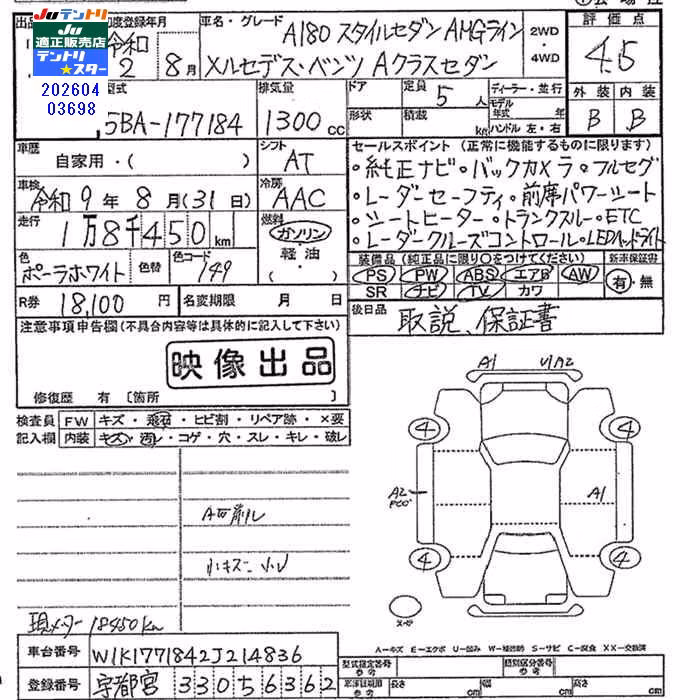 JUテントリ
JU適正販売店
テントリ
スター
202604
03698
初度登録年月
令和
2 8月
車名・グレード
A180 スタイルセダン AMGライン
メルセデス・ベンツ Aクラスセダン
2WD
・
4WD
評価点
4.5
型式
5BA-177184
排気量
1300 cc
ドア
形状
定員
5人
積載
kg
ディーラー・並行
モデル
年式 年
ハンドル 左・右
外装 内装
B B
車歴
自家用・( )
シフト
AT
車検
令和 9年 8月(31日)
冷房
AAC
走行
1万8千450km
燃料
ガソリン
・
軽油
・
( )
色
ポーラホワイト
色替
色コード
149
R券
18,100円
名変期限 月 日
セールスポイント(正常に機能するものに限ります)
・純正ナビ・バックカメラ・フルセグ
・レーダーセーフティ・前席パワーシート
・シートヒーター・トランクスルー・ETC
・レーダークルーズコントロール・LEDヘッドライト
装備品(純正品に限り○をつけてください)
PS PW ABS エアB AW
SR ナビ TV カワ
新車保証書
有・無
後日品
取説、保証書
注意事項申告欄(不具合内容等は具体的に記入して下さい)
映像出品
修復歴 有〔箇所 〕
検査員
記入欄
FW キズ・飛石・ヒビ割・リペア跡・×要
内装 キズ・汚レ・コゲ・穴・スレ・キレ・破レ
小キズ
現メーター 18450km
A1 U1A2
4 4
A2
A1
4 4
A=キズ E=エクボ U=凹み W=補修跡 S=サビ C=腐食 XX=交換済
車台番号
W1K1771842J214836
登録番号
宇都宮 330 5 6362
型式指定番号
類別区分番号
長さ cm 幅 cm 高さ cm